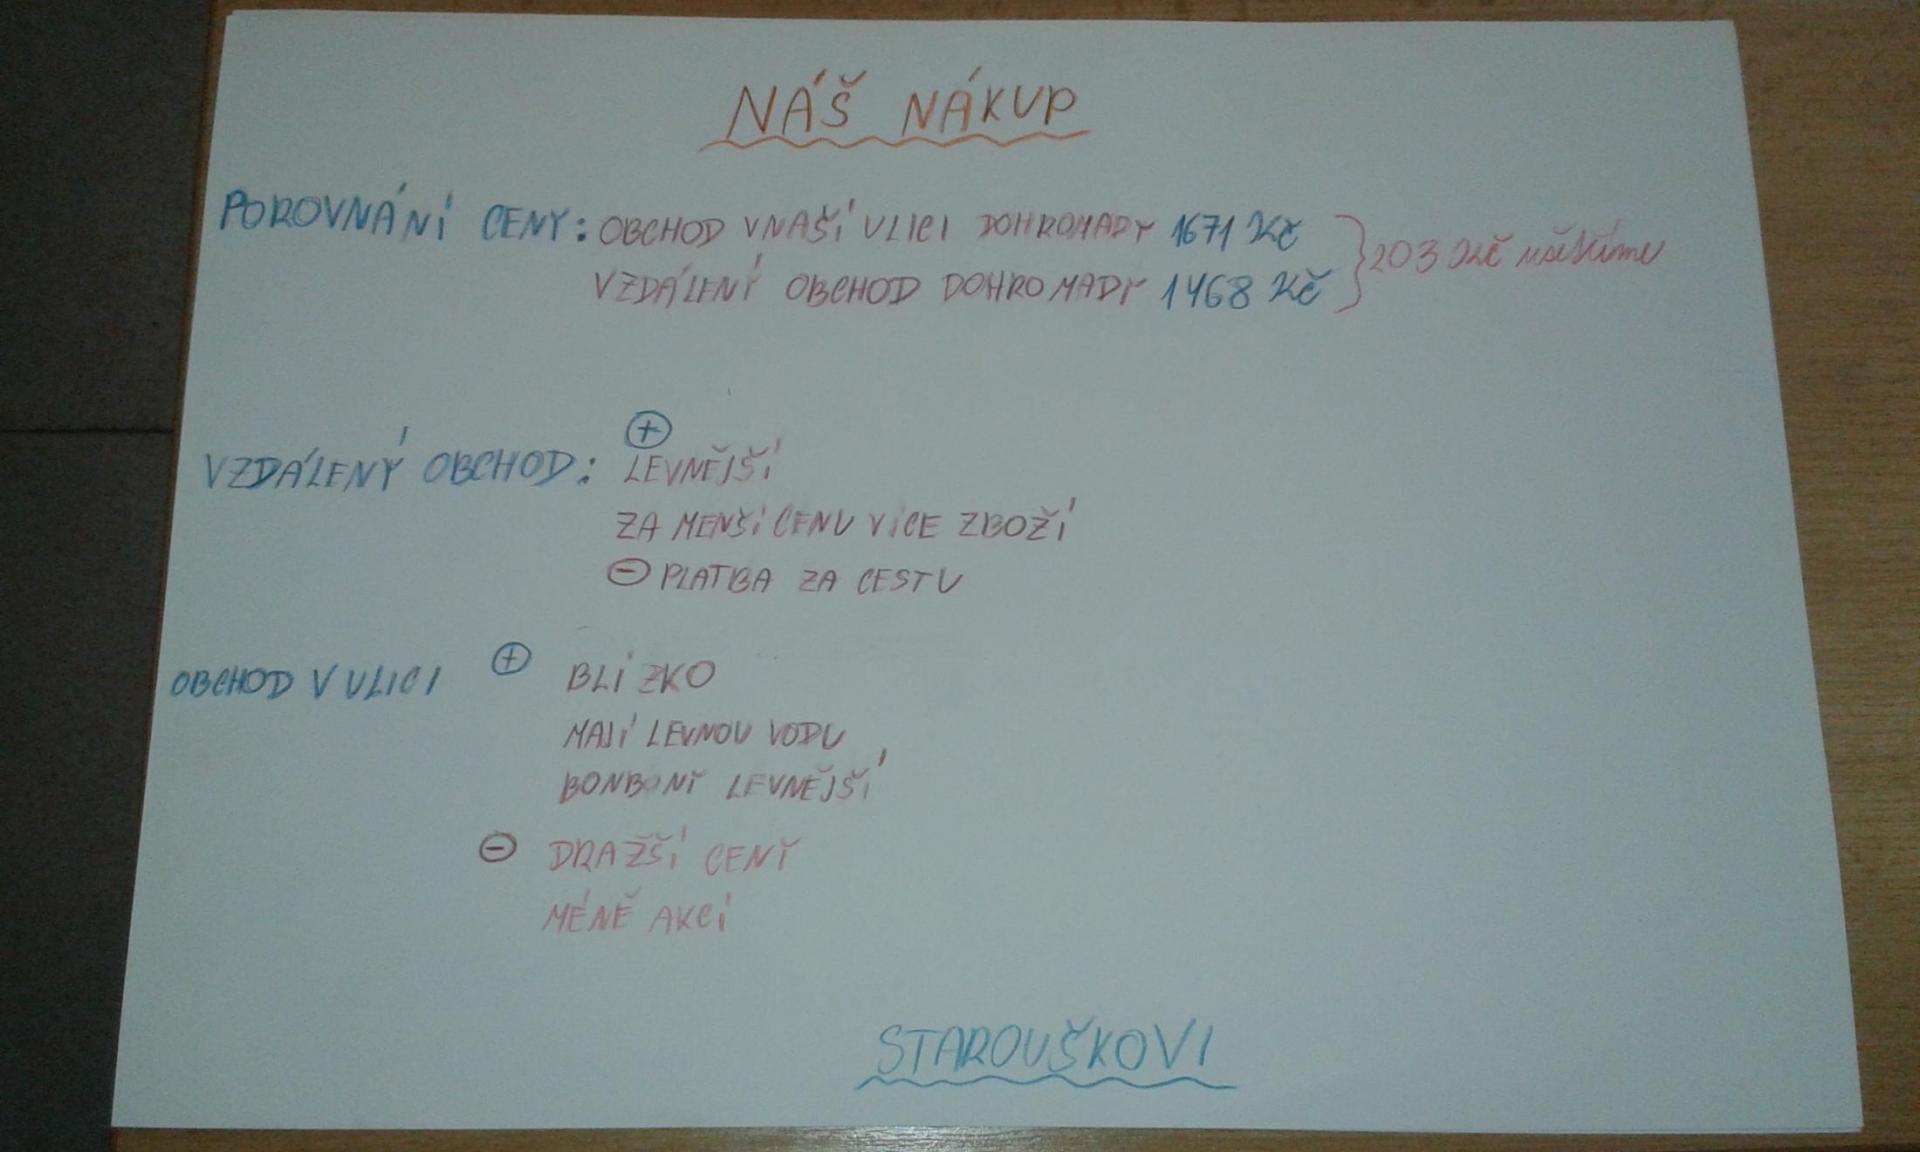 NÁŠ NÁKUP
POROVNÁNÍ CENY: OBCHOD V NAŠÍ ULICI DOHROMADY 1671 Kč
VZDÁLENÝ OBCHOD DOHROMADY 1468 Kč
203 Kč ušetříme
VZDÁLENÝ OBCHOD: +
LEVNĚJŠÍ
ZA MENŠÍ CENU VÍCE ZBOŽÍ
- PLATBA ZA CESTU
OBCHOD V ULICI + BLÍZKO
MAJÍ LEVNOU VODU
BONBONY LEVNĚJŠÍ
- DRAŽŠÍ CENY
MÉNĚ AKCÍ
STAROUŠKOVI